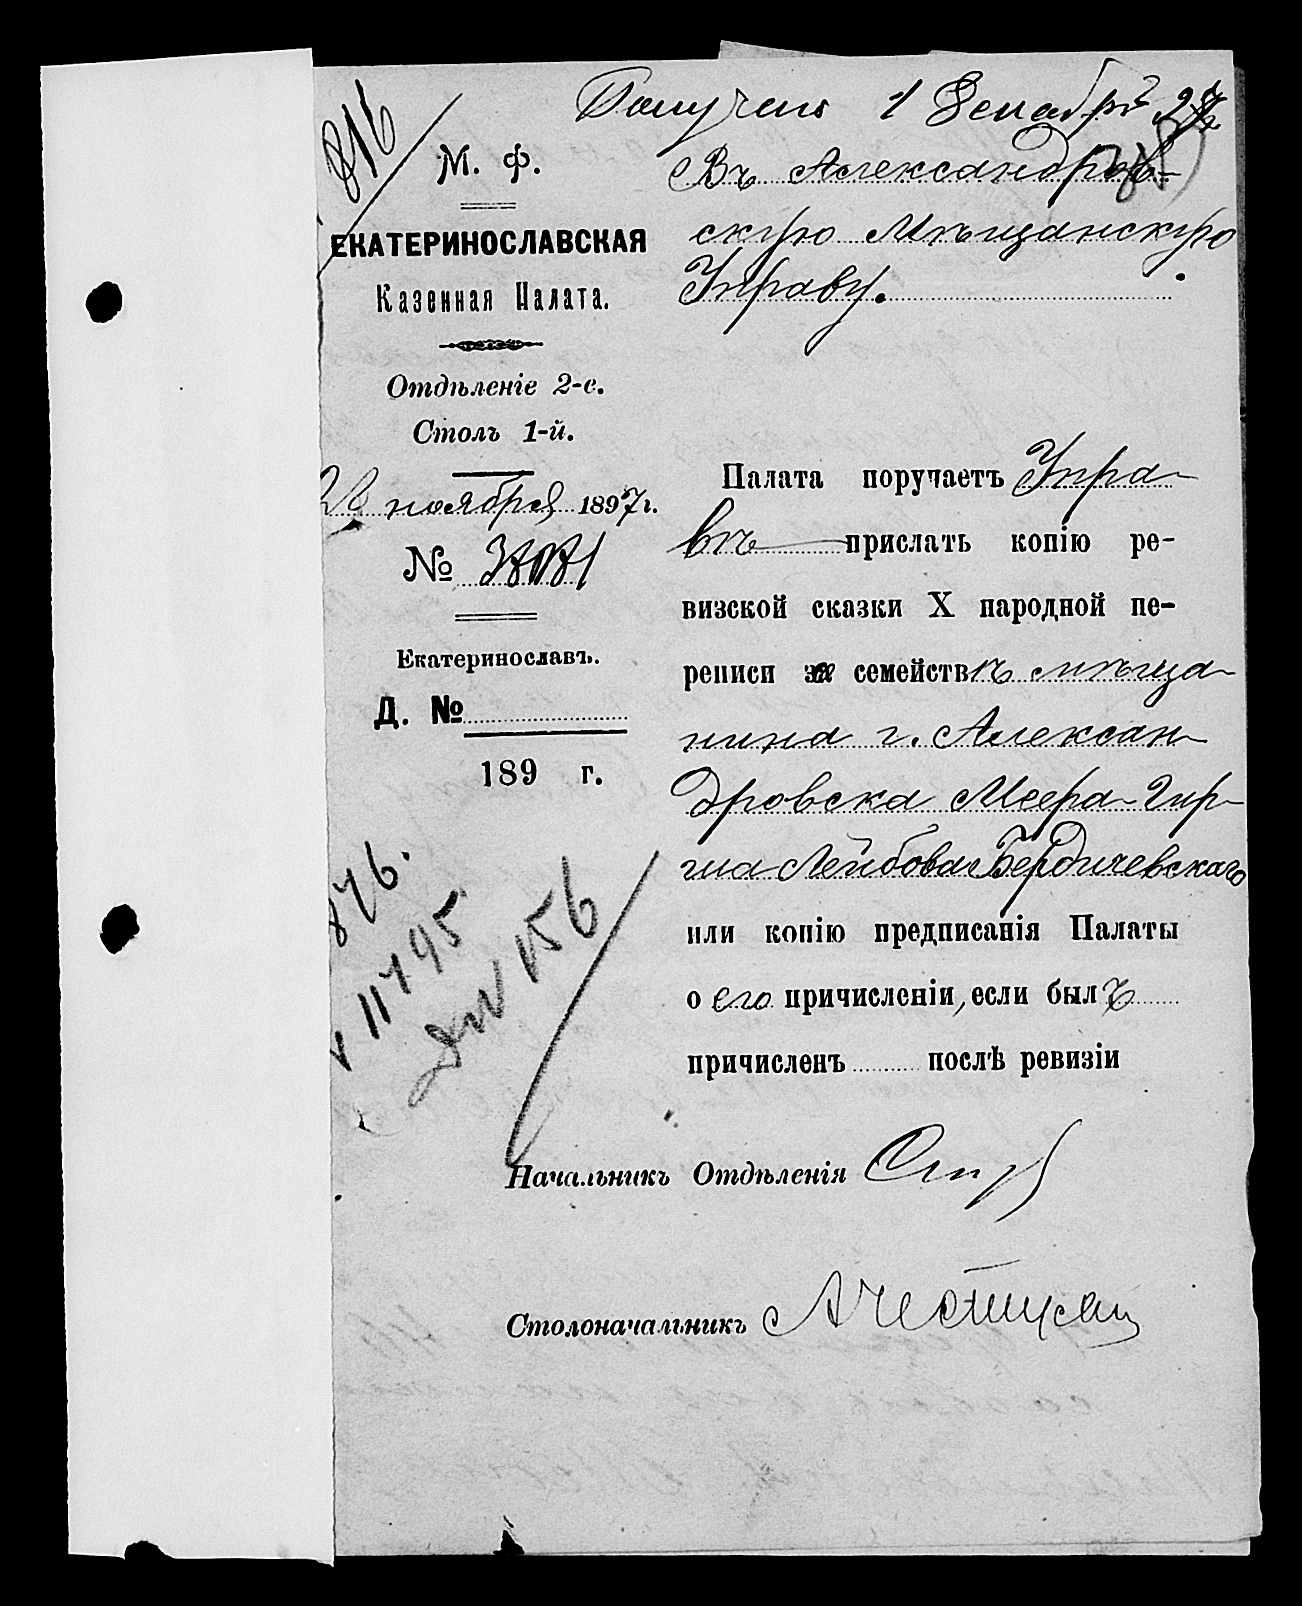 Получено 1 Декабря 97
816
М. Ф.
ЕКАТЕРИНОСЛАВСКАЯ
Казенная Палата.
Отдѣленіе 2-е.
Столъ 1-й.
ноября 1897 г.
№
Екатеринославъ.
Д. №
189 г.
Въ Александров-
скую Мѣщанскую
Управу.
Палата поручаетъ Упра-
вѣ прислать копію ре-
визской сказки X народной пе-
реписи о семействѣ мѣща-
нина г. Алексан-
дровска Меера-Гир-
ша Лейбова Бердичевскаго
или копію предписанія Палаты
о его причисленіи, если былъ
причисленъ послѣ ревизіи
876.
11795
156
Начальникъ Отдѣленія
Столоначальникъ